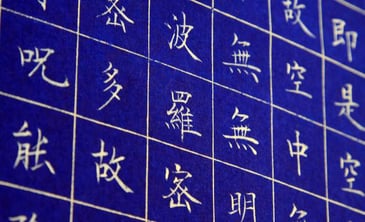 即是空
故空中
無無明
波羅密
密多故
呪能